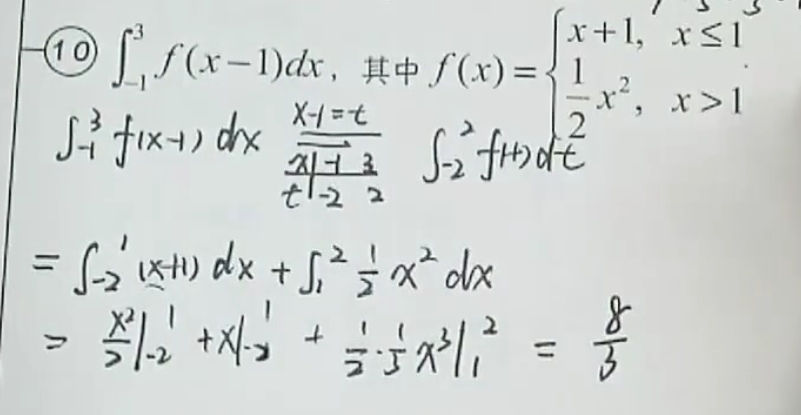 ⑩ ∫_{-1}^{3} f(x-1)dx, 其中 f(x) = { x+1, x≤1
1/2 x², x>1
∫_{-1}^{3} f(x-1) dx  x-1=t  ∫_{-2}^{2} f(t) dt
x | -1 3
t | -2 2
= ∫_{-2}^{1} (x+1) dx + ∫_{1}^{2} 1/2 x² dx
= x²/2 |_{-2}^{1} + x|_{-2}^{1} + 1/2 · 1/3 x³ |_{1}^{2} = 8/3